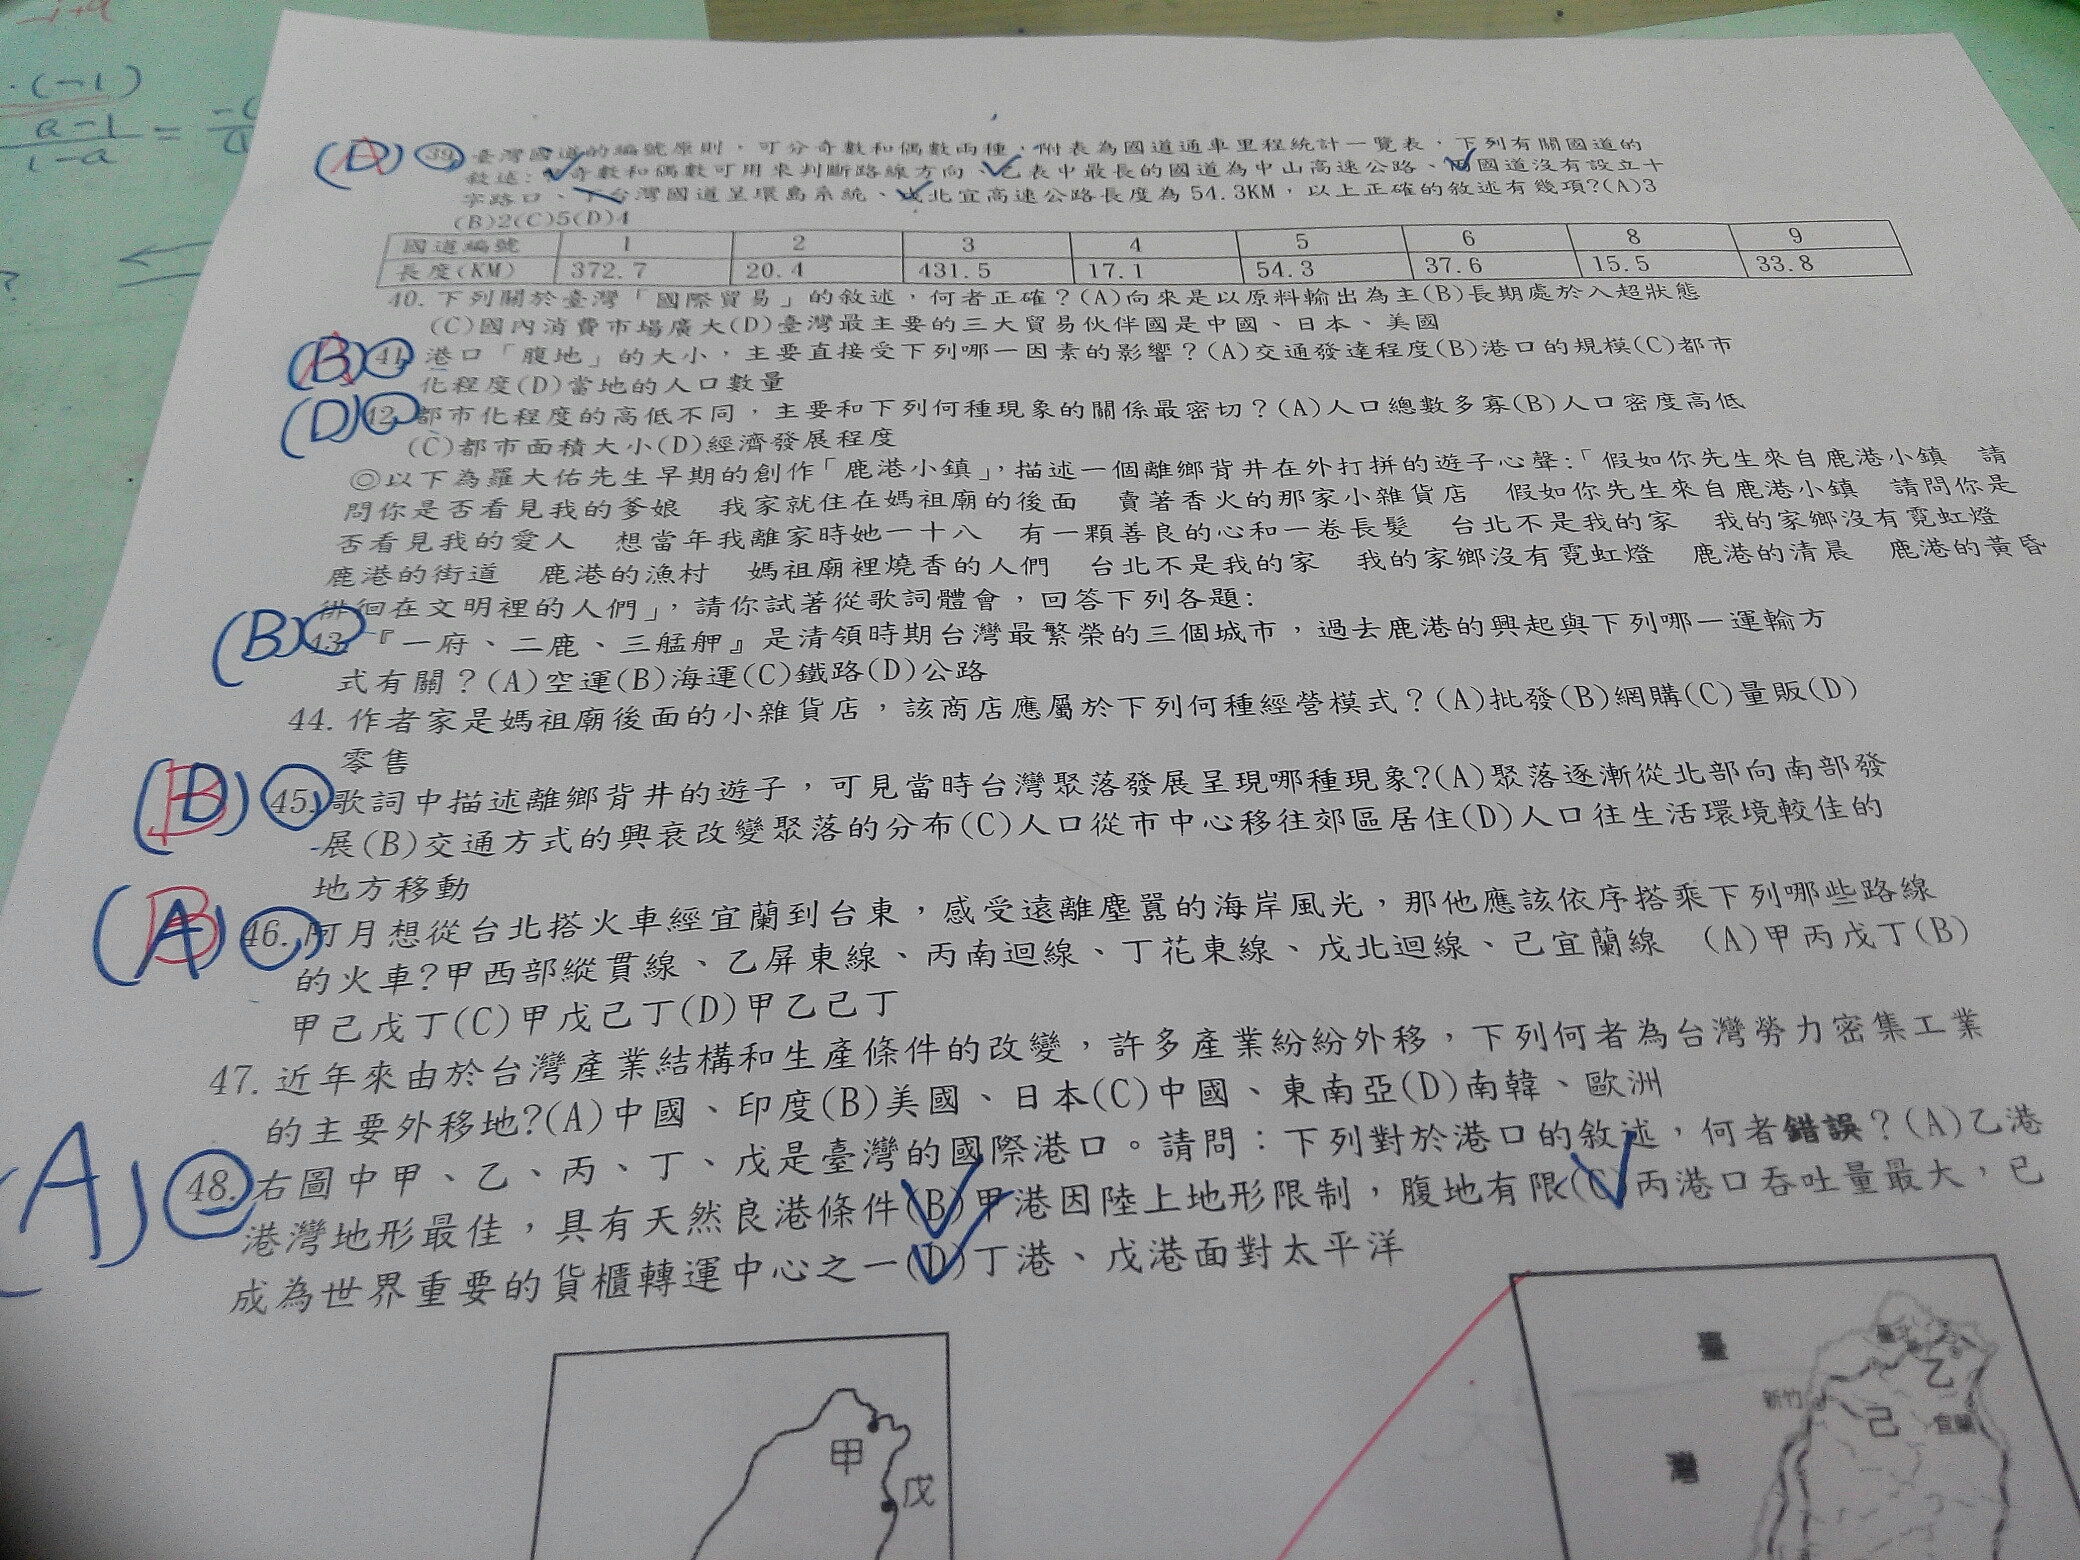 - (-1)
a-1
1-a
=
(D) 39. 臺灣國道的編號原則，可分奇數和偶數兩種，附表為國道通車里程統計一覽表，下列有關國道的
敘述：甲奇數和偶數可用來判斷路線方向、乙表中最長的國道為中山高速公路、丙國道沒有設立十
字路口、丁台灣國道呈環島系統、戊北宜高速公路長度為54.3KM，以上正確的敘述有幾項?(A)3
(B)2(C)5(D)4
國道編號 1 2 3 4 5 6 8 9
長度(KM) 372.7 20.4 431.5 17.1 54.3 37.6 15.5 33.8
40. 下列關於臺灣「國際貿易」的敘述，何者正確？(A)向來是以原料輸出為主(B)長期處於入超狀態
(C)國內消費市場廣大(D)臺灣最主要的三大貿易伙伴國是中國、日本、美國
(B) 41. 港口「腹地」的大小，主要直接受下列哪一因素的影響？(A)交通發達程度(B)港口的規模(C)都市
化程度(D)當地的人口數量
(D) 42. 都市化程度的高低不同，主要和下列何種現象的關係最密切？(A)人口總數多寡(B)人口密度高低
(C)都市面積大小(D)經濟發展程度
◎以下為羅大佑先生早期的創作「鹿港小鎮」，描述一個離鄉背井在外打拼的遊子心聲：「假如你先生來自鹿港小鎮 請
問你是否看見我的爹娘 我家就住在媽祖廟的後面 賣著香火的那家小雜貨店 假如你先生來自鹿港小鎮 請問你是
否看見我的愛人 想當年我離家時她一十八 有一顆善良的心和一卷長髮 台北不是我的家 我的家鄉沒有霓虹燈
鹿港的街道 鹿港的漁村 媽祖廟裡燒香的人們 台北不是我的家 我的家鄉沒有霓虹燈 鹿港的清晨 鹿港的黃昏
徘徊在文明裡的人們」，請你試著從歌詞體會，回答下列各題：
(B) 43. 『一府、二鹿、三艋舺』是清領時期台灣最繁榮的三個城市，過去鹿港的興起與下列哪一運輸方
式有關？(A)空運(B)海運(C)鐵路(D)公路
44. 作者家是媽祖廟後面的小雜貨店，該商店應屬於下列何種經營模式？(A)批發(B)網購(C)量販(D)
零售
(D) 45. 歌詞中描述離鄉背井的遊子，可見當時台灣聚落發展呈現哪種現象?(A)聚落逐漸從北部向南部發
展(B)交通方式的興衰改變聚落的分布(C)人口從市中心移往郊區居住(D)人口往生活環境較佳的
地方移動
(A) 46. 阿月想從台北搭火車經宜蘭到台東，感受遠離塵囂的海岸風光，那他應該依序搭乘下列哪些路線
的火車?甲西部縱貫線、乙屏東線、丙南迴線、丁花東線、戊北迴線、己宜蘭線 (A)甲丙戊丁(B)
甲己戊丁(C)甲戊己丁(D)甲乙己丁
47. 近年來由於台灣產業結構和生產條件的改變，許多產業紛紛外移，下列何者為台灣勞力密集工業
的主要外移地?(A)中國、印度(B)美國、日本(C)中國、東南亞(D)南韓、歐洲
(A) 48. 右圖中甲、乙、丙、丁、戊是臺灣的國際港口。請問：下列對於港口的敘述，何者錯誤？(A)乙港
港灣地形最佳，具有天然良港條件(B)甲港因陸上地形限制，腹地有限(C)丙港口吞吐量最大，已
成為世界重要的貨櫃轉運中心之一(D)丁港、戊港面對太平洋
甲
戊
臺
灣
新竹
乙
己
宜蘭